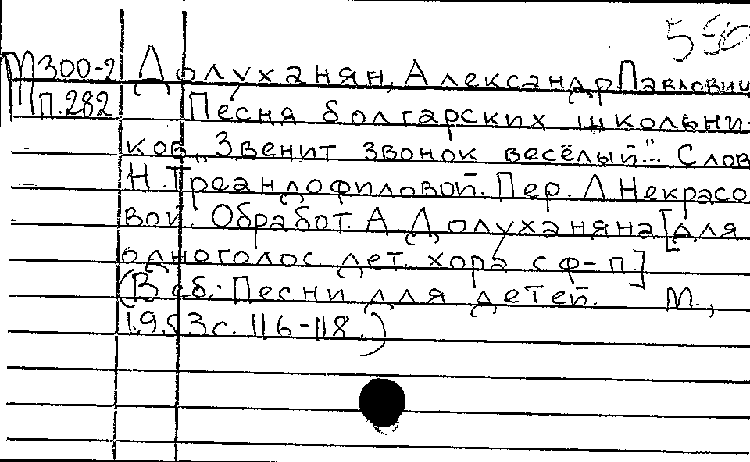 550
М300-2 Долуханян, Александр Павлович
П.282 Песня болгарских школьни-
ков „Звенит звонок весёлый"... Слов
Н. Треандофиловой. Пер. Л Некрасо
вой. Обработ. А Долуханяна [для
одноголос дет. хора с ф-п]
(В сб.: Песни для детей. М.,
1953 с. 116-118.)